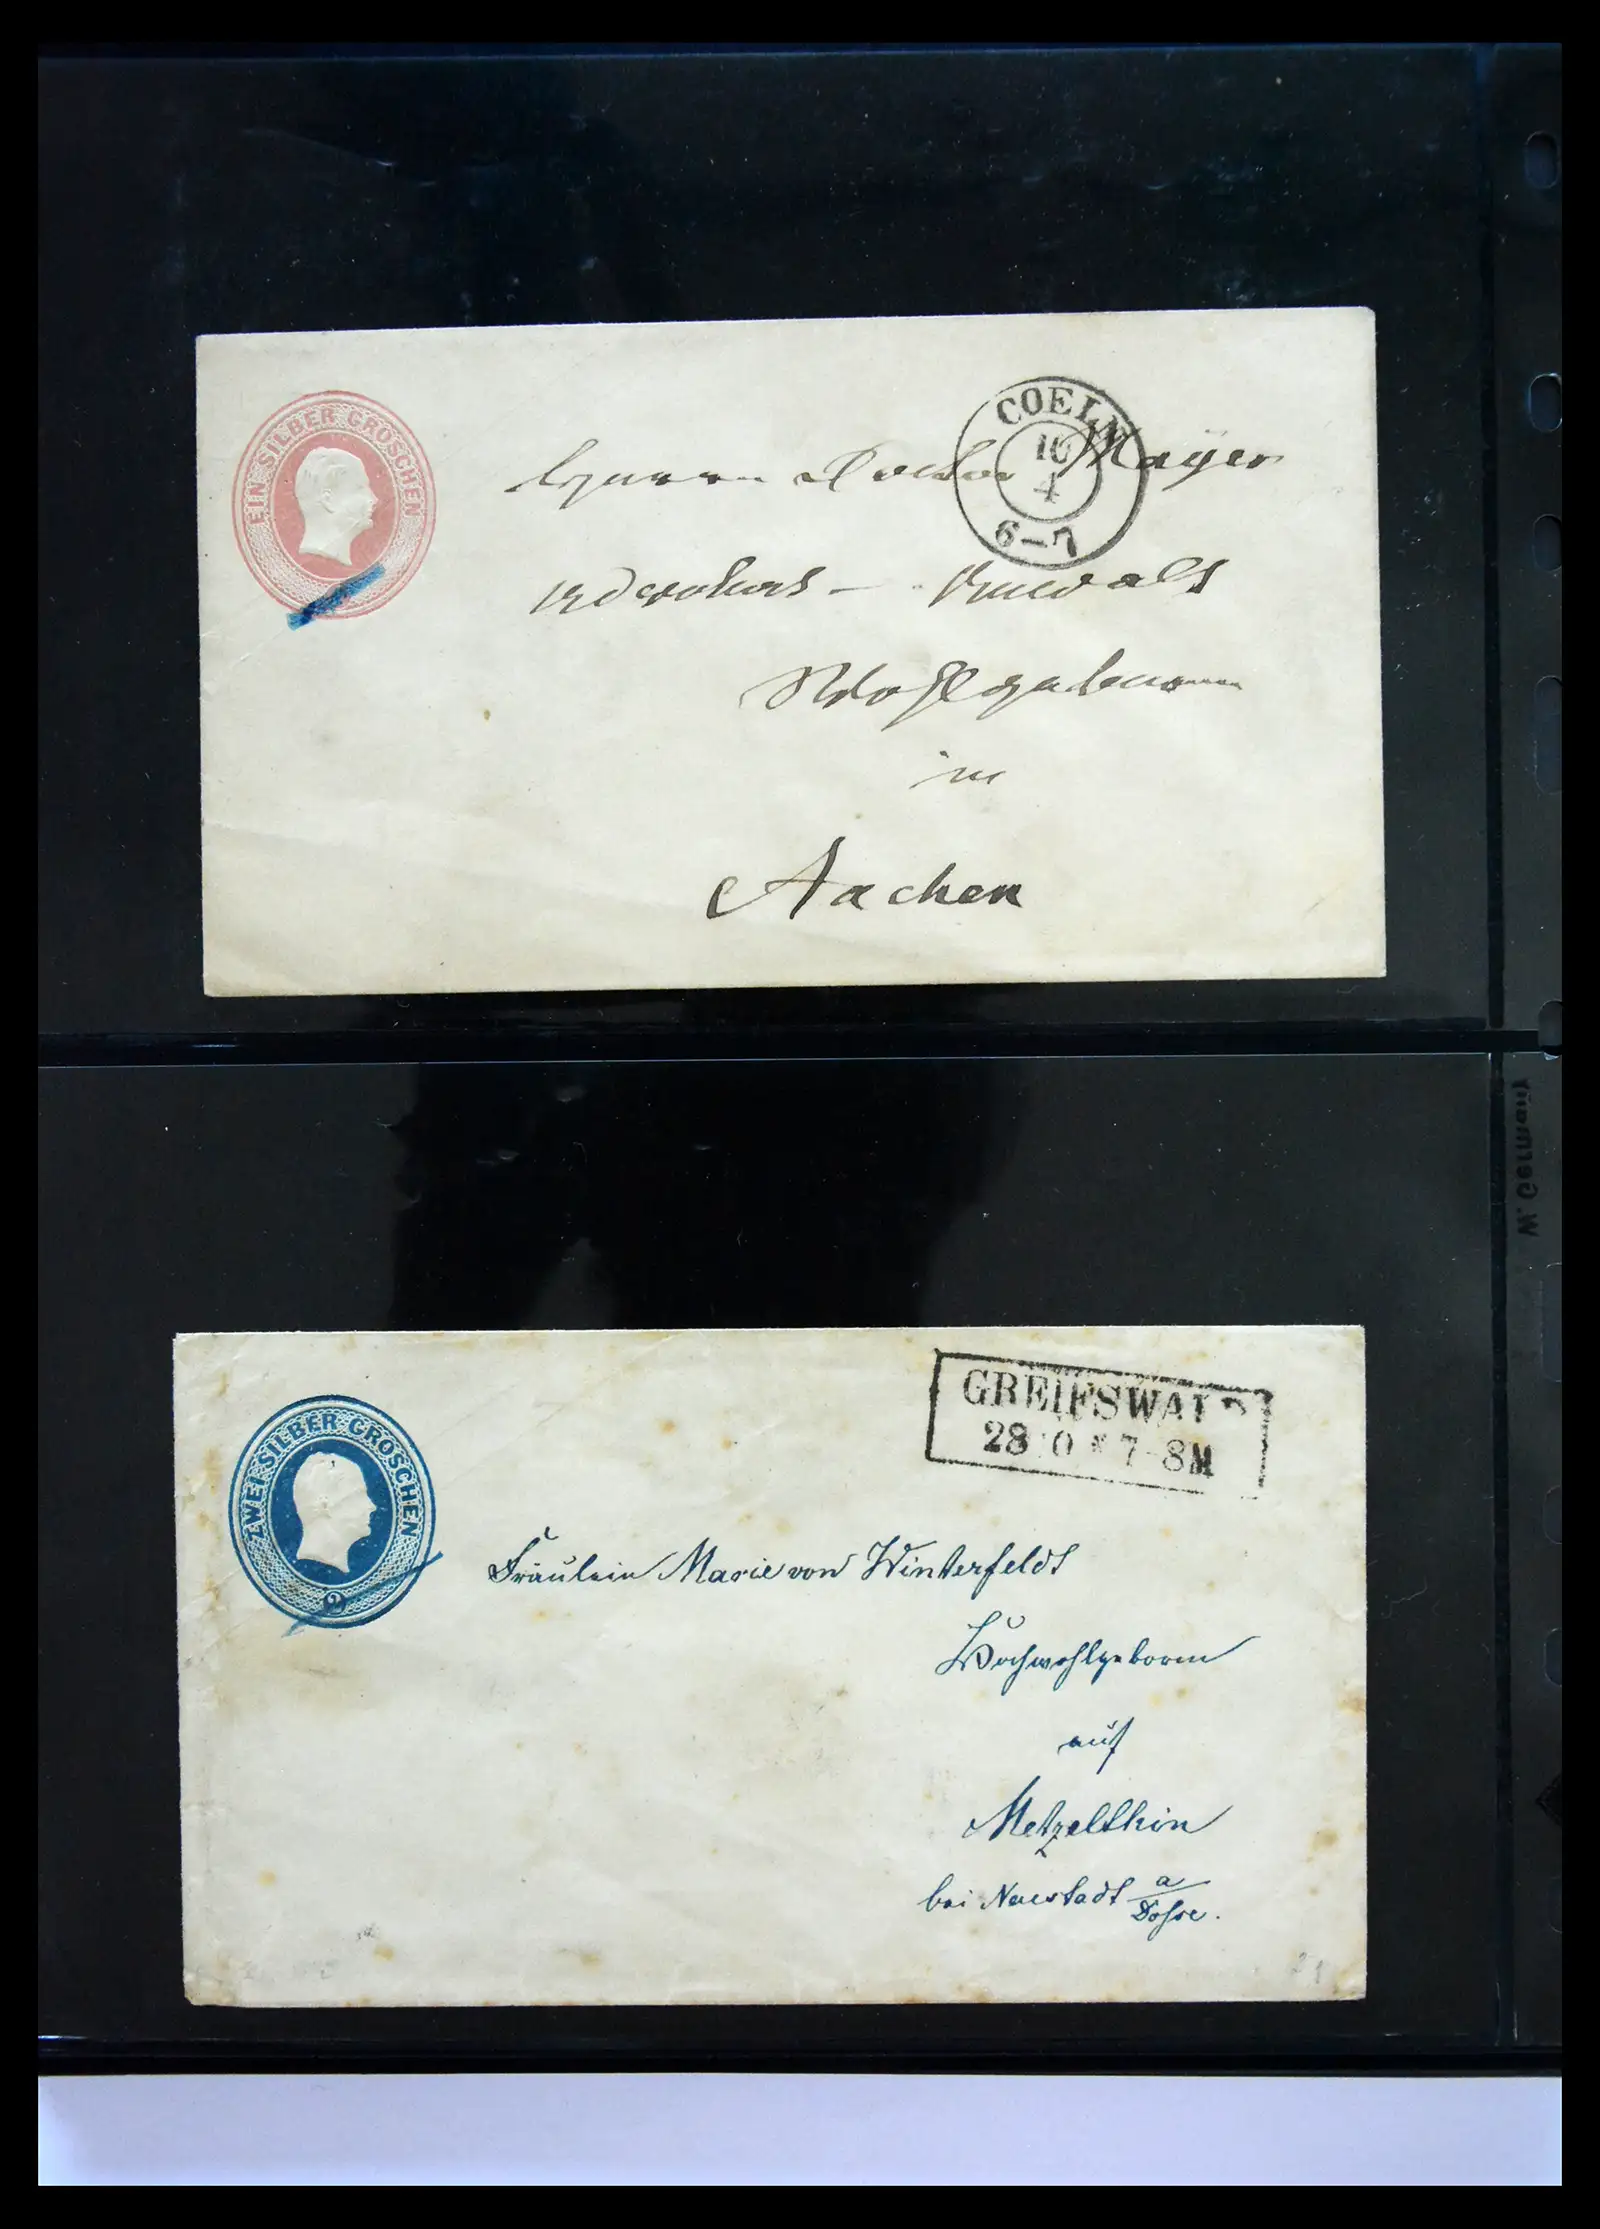 EIN SILBER GROSCHEN
COELN
10
4
6-7
Herrn Doctor Mayer
Advokat - Anwalt
Wohlgeboren
in
Aachen
W. Germany
ZWEI SILBER GROSCHEN
2
GREIFSWALD
28 10 * 7-8M
Fräulein Marie von Winterfeldt
Hochwohlgeboren
auf
Metzelthin
bei Neustadt a/Dosse.
21